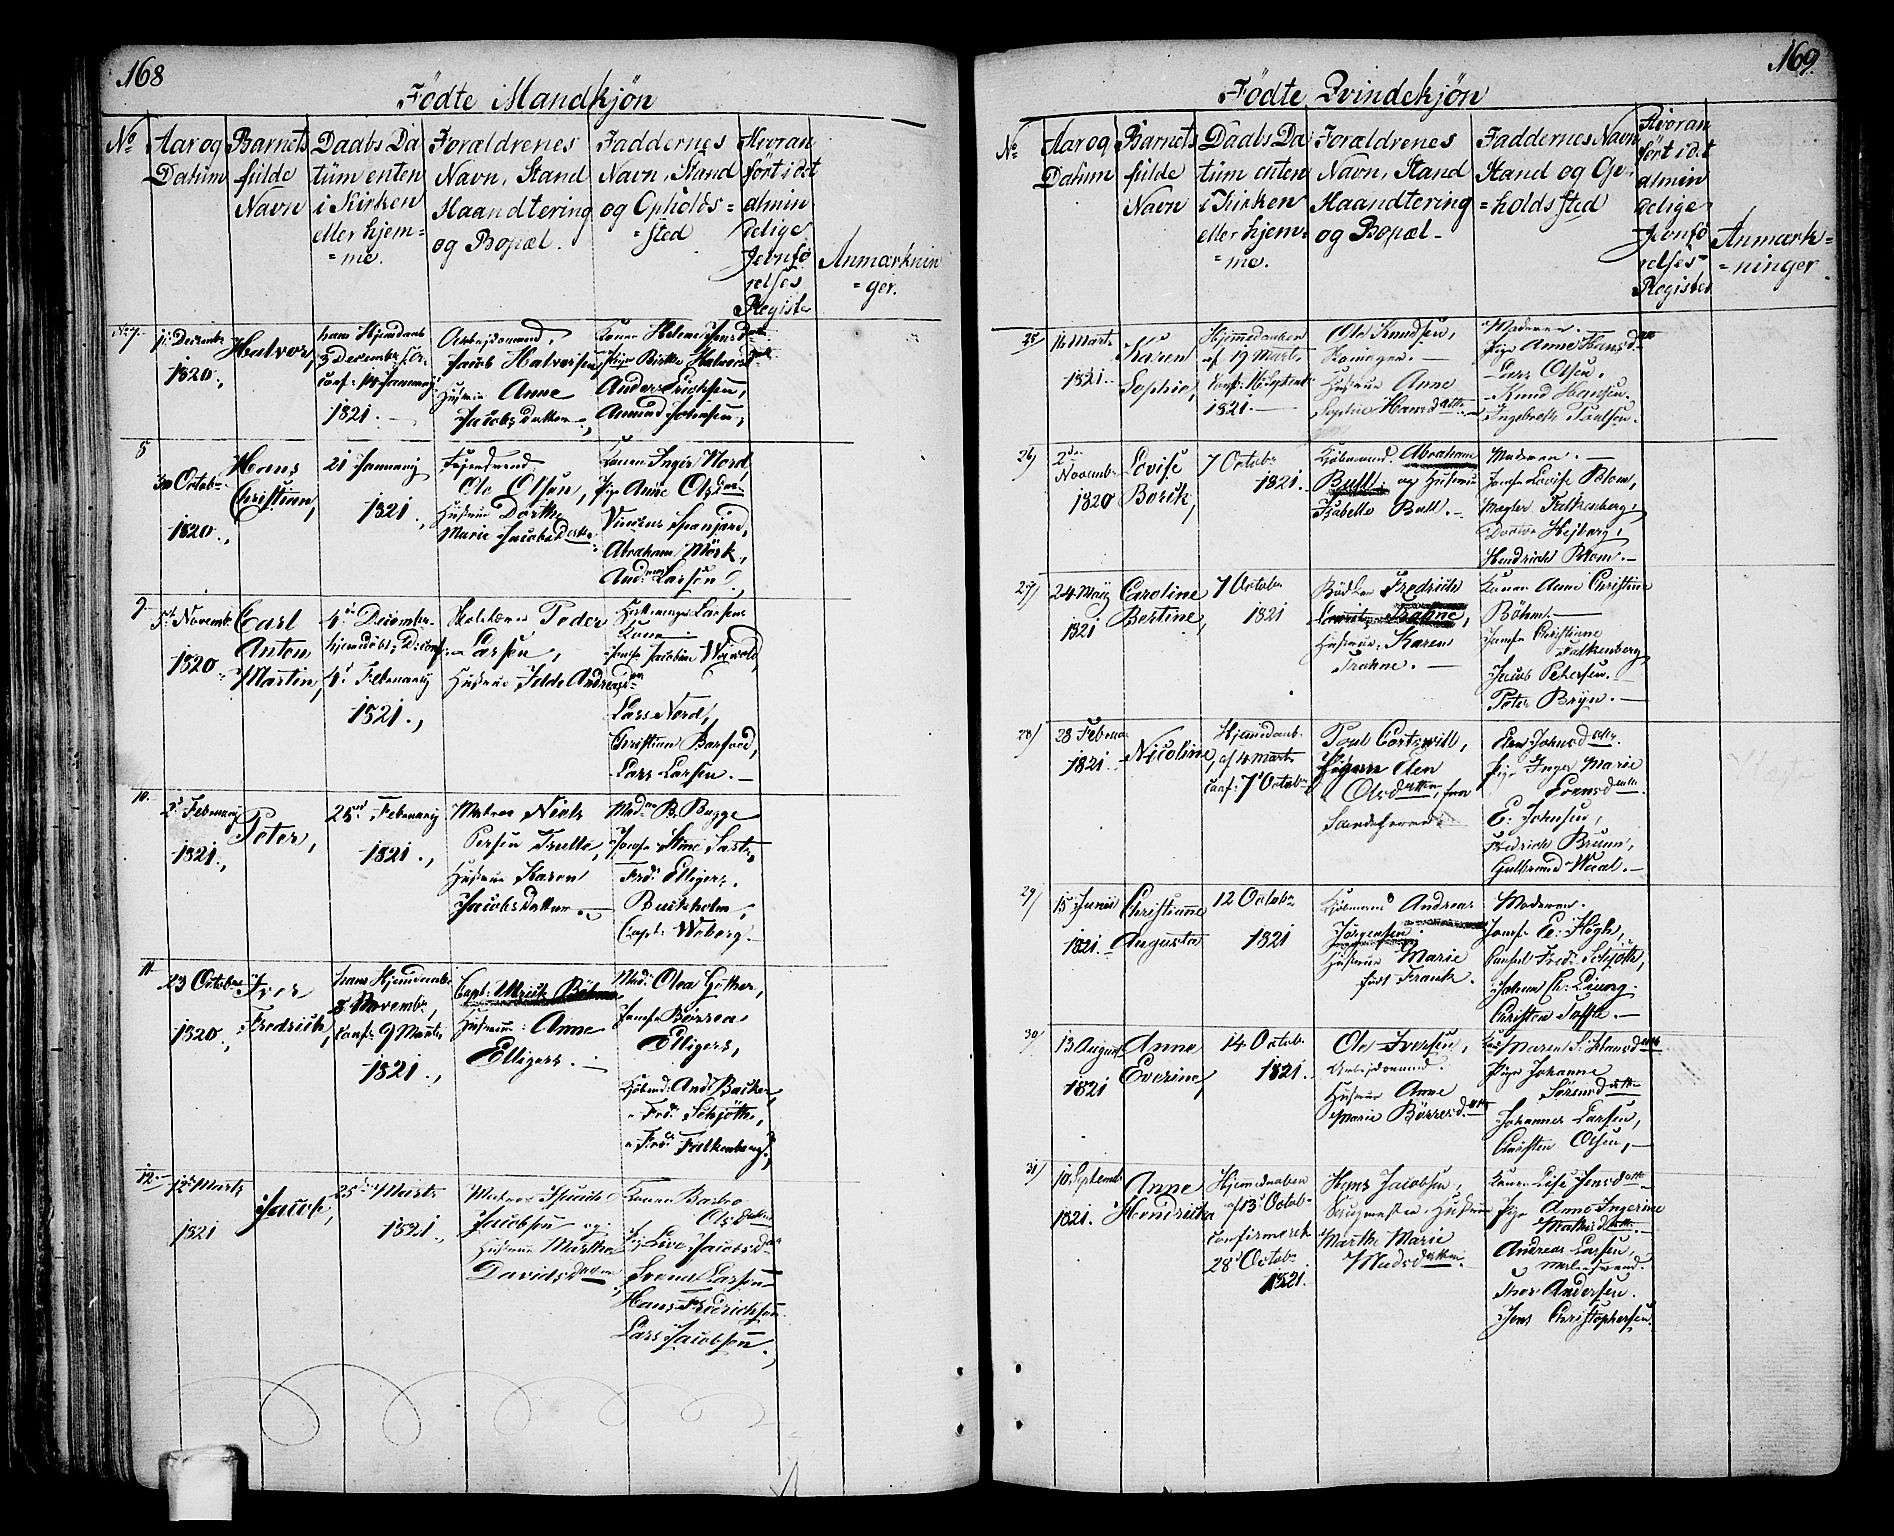 168
Födte Mandkjön
No
Aar og
Datum
Barnets
fulde
Navn
Daabs Da
tüm enten
i Kirken
eller hjem=
=me.
Forældrenes
Navn, Stand
Haandtering
og Bopæl.
Faddernes
Navn, Stand
og Opholds=
=sted
Hvoran
ført i det
almin
delige
Jevnfø
relses
Registe
Anmærknin
=ger.
No 7.
1 Decembr
1820,
Halvor,
hans Hjemdaab
3 Decembr
Conf: 14 Januarij
1821.
Arbejdsmand,
Jacob Halvorsen
Hustrue Anne
Jacobsdatter
Konen Helene
Pige Birthe Halvorsd
Anders Erichsen,
Amund Johnsen,
8
30 Octob
1820.,
Hans
Christian,
21 Januarij
1821.,
Ole Olsen,
Hustrue Dorthe
Marie Jacobsdatter
Konen Inger Nord,
Pige Anne Olsdtr
Abraham Mörk,
And Larsen,
9
5 Novembr
1820
Carl
Anton
Martin,
4 December
hjemdöbt, Dr: conf
4 Februarij
1821.,
Peder
Larsen,
Hustrue Ilde Andreasd
Larsens
Kone
Jomfr Jacobine Wexold,
Lars Nord,
Christian Barfoed,
Lars Larsen.
10.
2 Februarij
1821.,
Peter,
25 Februarij
1821.,
Matros Niels
Persen Trulle,
Hustrue Karen
Jacobsdatter.
Mad B. Bugge
Jomfr Stine Sart,
Frd: Elligers.
Buckholm,
Capt: Woberg.
11
23 October
1820.,
Iver
Fredrich,
hans Hjemdaab
8 Novembr,
Conf: 9 Marts
1821.,
Capt: Ulrich Böhme
Hustrue: Anne
Elligers.
Mad: Olea Gether,
Jomfr Börrea
Elligers,
Kjöbmd: And Backer,
" Frd: Schjöth,
" Frd: Falkenberg,
12
12 Marts
1821
Jacob,
25 Marts
1821.,
Matros
Jacobsen og
Hustrue Marthe
Davidsdatter
Konen Barbro
Olsdatter
Pige Live Jacobsd
Svend Larsen
Hans Fredrichsen
Lars Jacobsen.
169.
Födte Qvindekjön
No
Aar og
Datum
Barnets
fulde
Navn
Daabs Da
tüm enten
i Kirken
eller hjem=
=me.
Forældrenes
Navn, Stand
Haandtering
og Bopæl.
Faddernes Navn
Stand og Op=
=holdssted
Hvoran
ført i det
almin
delige
Jevnfø
relses=
Register
Anmærk=
=ninger.
25/
16 Marts
1821.
Karen
Sophie,
Hjemmedaaben
af 19 Marts
Conf: 16 Septembr
1821.
Ole Knudsen,
Hustrue Anne
Sophie Hansdatter
Moderen.
Pige Anne Hansd
Lars Olsen.
Knud Hansen,
Ingebreth Poulsen.
26/
2
Novembr
1820
Lovise
Borik,
7 Octobr
1821.
Kjöbmand Abraham
Bull. og Hustrue
Isabelle Bull.
Moderen.
Jomfr Lovise Blom,
Mægler Falkenberg,
Doctor Hejberg,
Hendrich Blom.
27/
24 Maij
1821
Caroline
Bertine,
7 Octobr
1821
Bödker Fredrich
Laurits Trohne,
Hustrue Karen
Trohne.
Konen Anne Christine
Böhm
Jomfr Christiane
Falkenberg,
Jacob Petersen.
Peter Bryn.
28/
28 Februar
1821.
Nicoline,
Hjemmedaab.
af 4 Marts
Conf: 7 Octobr
Poul Cortswill,
Pigen Elen
Olsdatter, fra
Sandefjord
Elen Johnsdattr.
Pige Inger Marie
Evensdatt.
E: Johnsen,
Fredrich Bruun,
Gulbrand Waal.
29/
15 Junii
1821.
Christiane
Augusta
12 Octobr
1821
Kjöbmand Andreas
Jörgensen.
Hustrue Marie
född Frank.
Moderen.
Jomfr E: Högh,
Consul Frd: Schjöth,
Johan Ch: Liung.
Christen Toffte.
30/
13 August
1821
Anne
Everine,
14 Octobr
1821.
Ole Iversen,
Arbejdsmand.
Hustrue Anne
Marie Börresd.
Maren S: Hansdatt
Pige Johanne
Sörensdatt
Johannes Larsen,
Christen Olsen,
31/
10 Septembr
1821.
Anne
Hendrikka
Hjemmedaaben
af 13 Octob
Confirmeret
28 Octobr
1821.
Hans Jacobsen,
Hustrue
Marthe Marie
Madsdatter.
Konen Lise Jensdattr
Pige Anne Ingerine
Mathisdattr.
Andreas Larsen,
Thor Andersen.
Jens Christophersen.